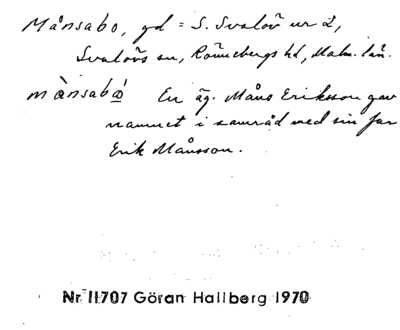 Månsabo, gd = S. Svalöv nr 2,
Svalövs sn, Rönnebergs hd, Malm. län.
mànsabó En äg. Måns Eriksson gav
namnet i samråd med sin far
Erik Månsson.
Nr 11707 Göran Hallberg 1970